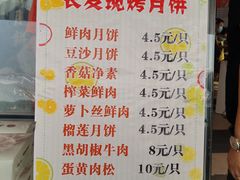 长发现烤月饼
鲜肉月饼 4.5元/只
豆沙月饼 4.5元/只
香菇净素 4.5元/只
榨菜鲜肉 4.5元/只
萝卜丝鲜肉 4.5元/只
榴莲月饼 4.5元/只
黑胡椒牛肉 8元/只
蛋黄肉松 10元/只